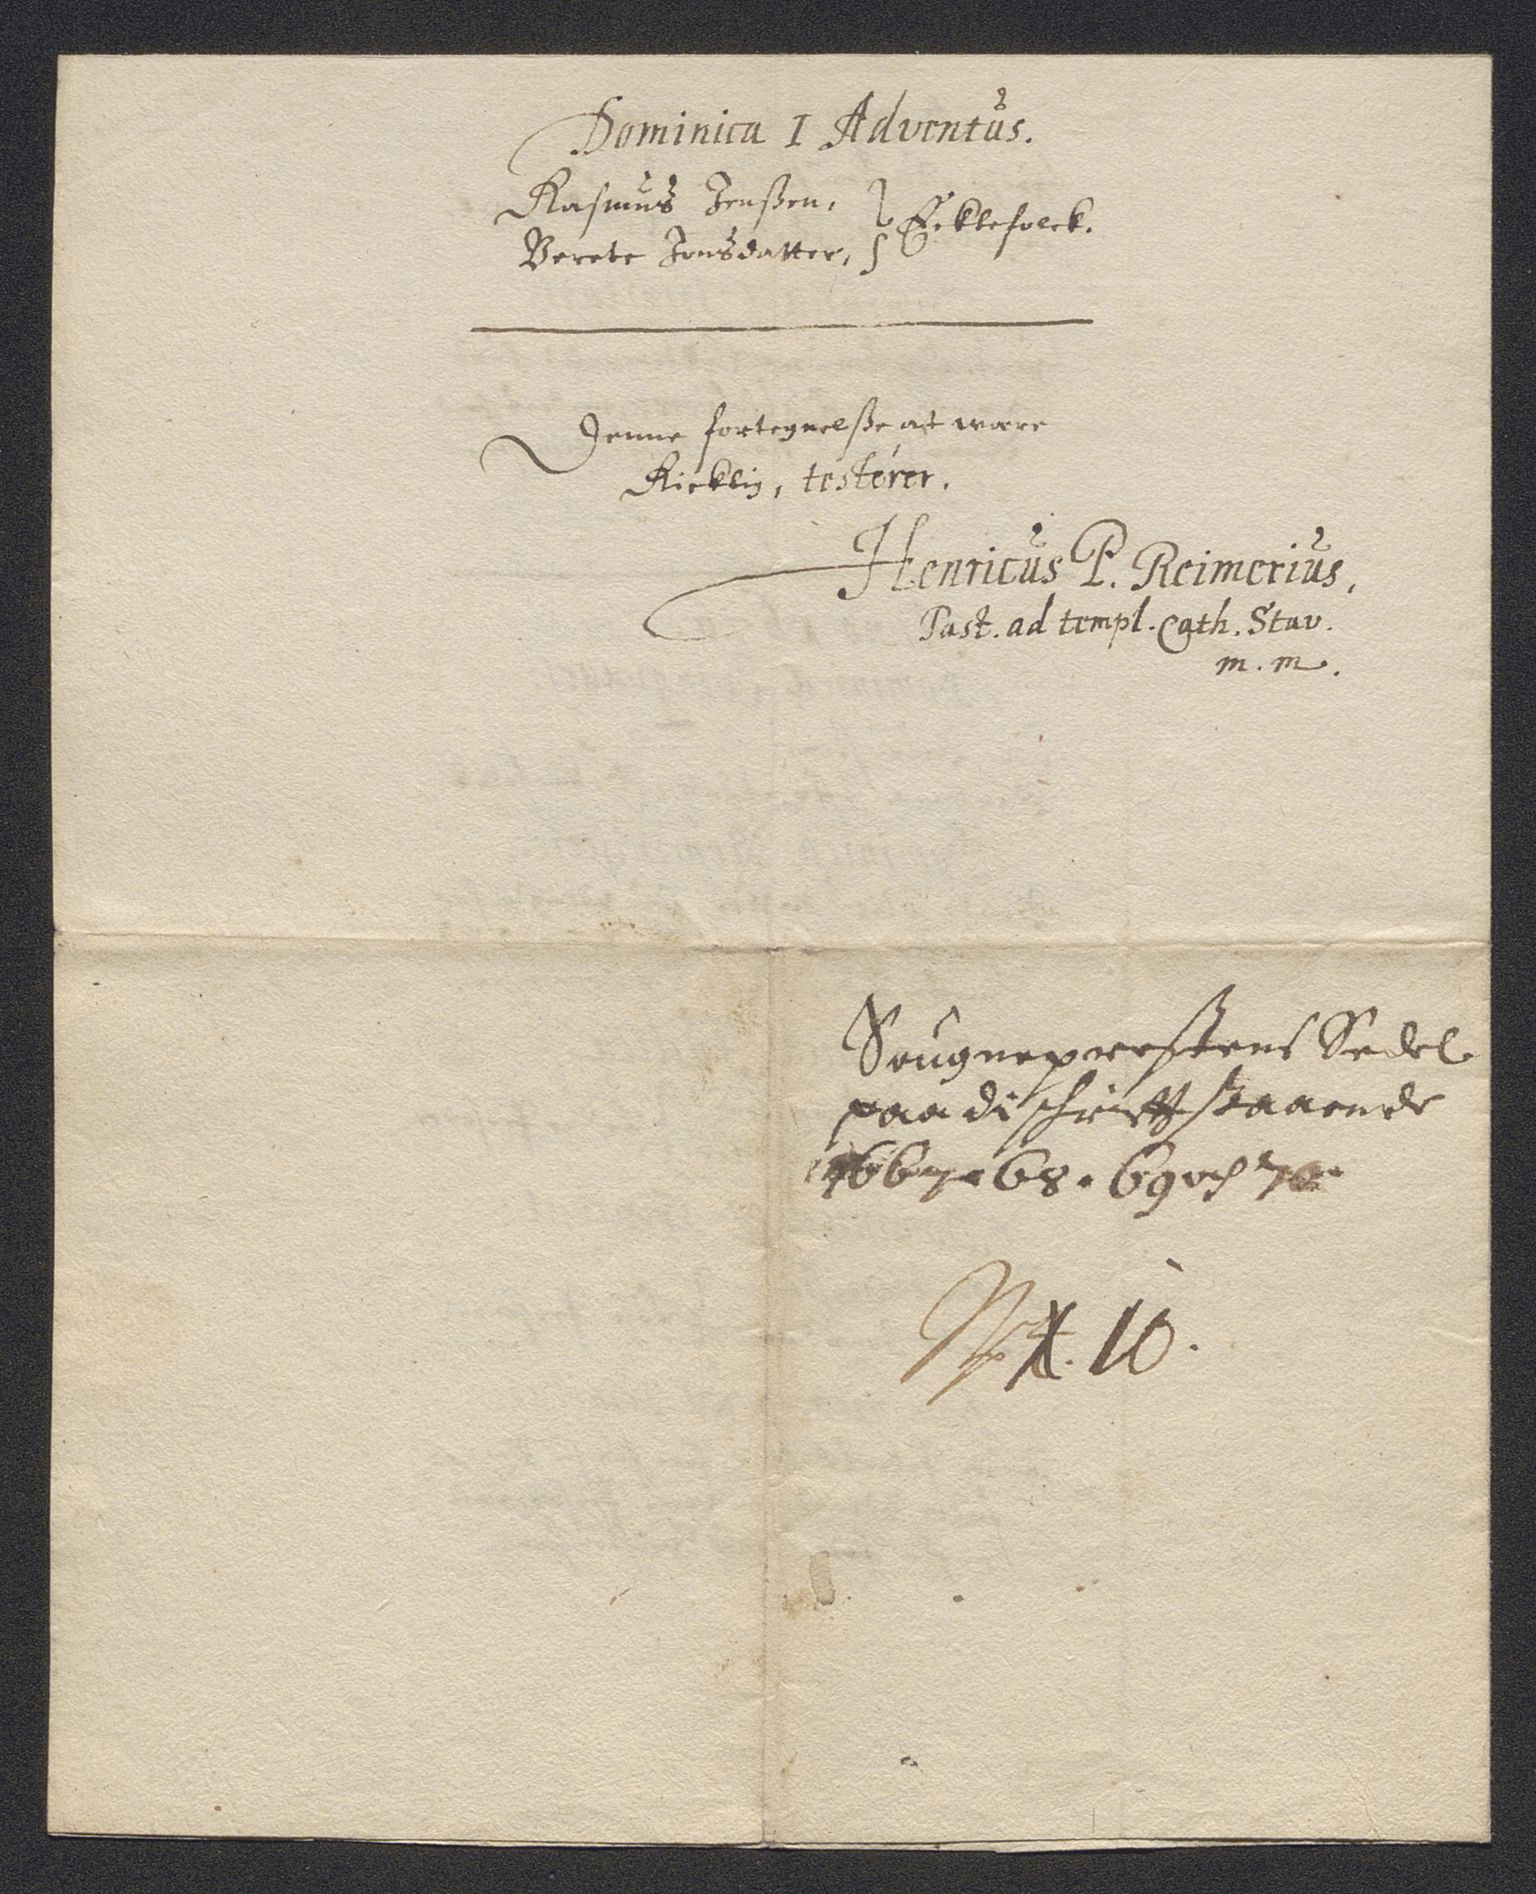 Dominica I Adventus.
Rasmus Jenßen,
Berete Jonsdatter, } Ecktefolck.
Denne fortegnelße at være
Ricktig, testerer.
Henricus P. Reimerius,
Past. ad templ. Cath. Stav.
m. m.
Sougneprestens Sedel
paa di schrifft staaende
1667. 68. 69 och 70.
No 10.